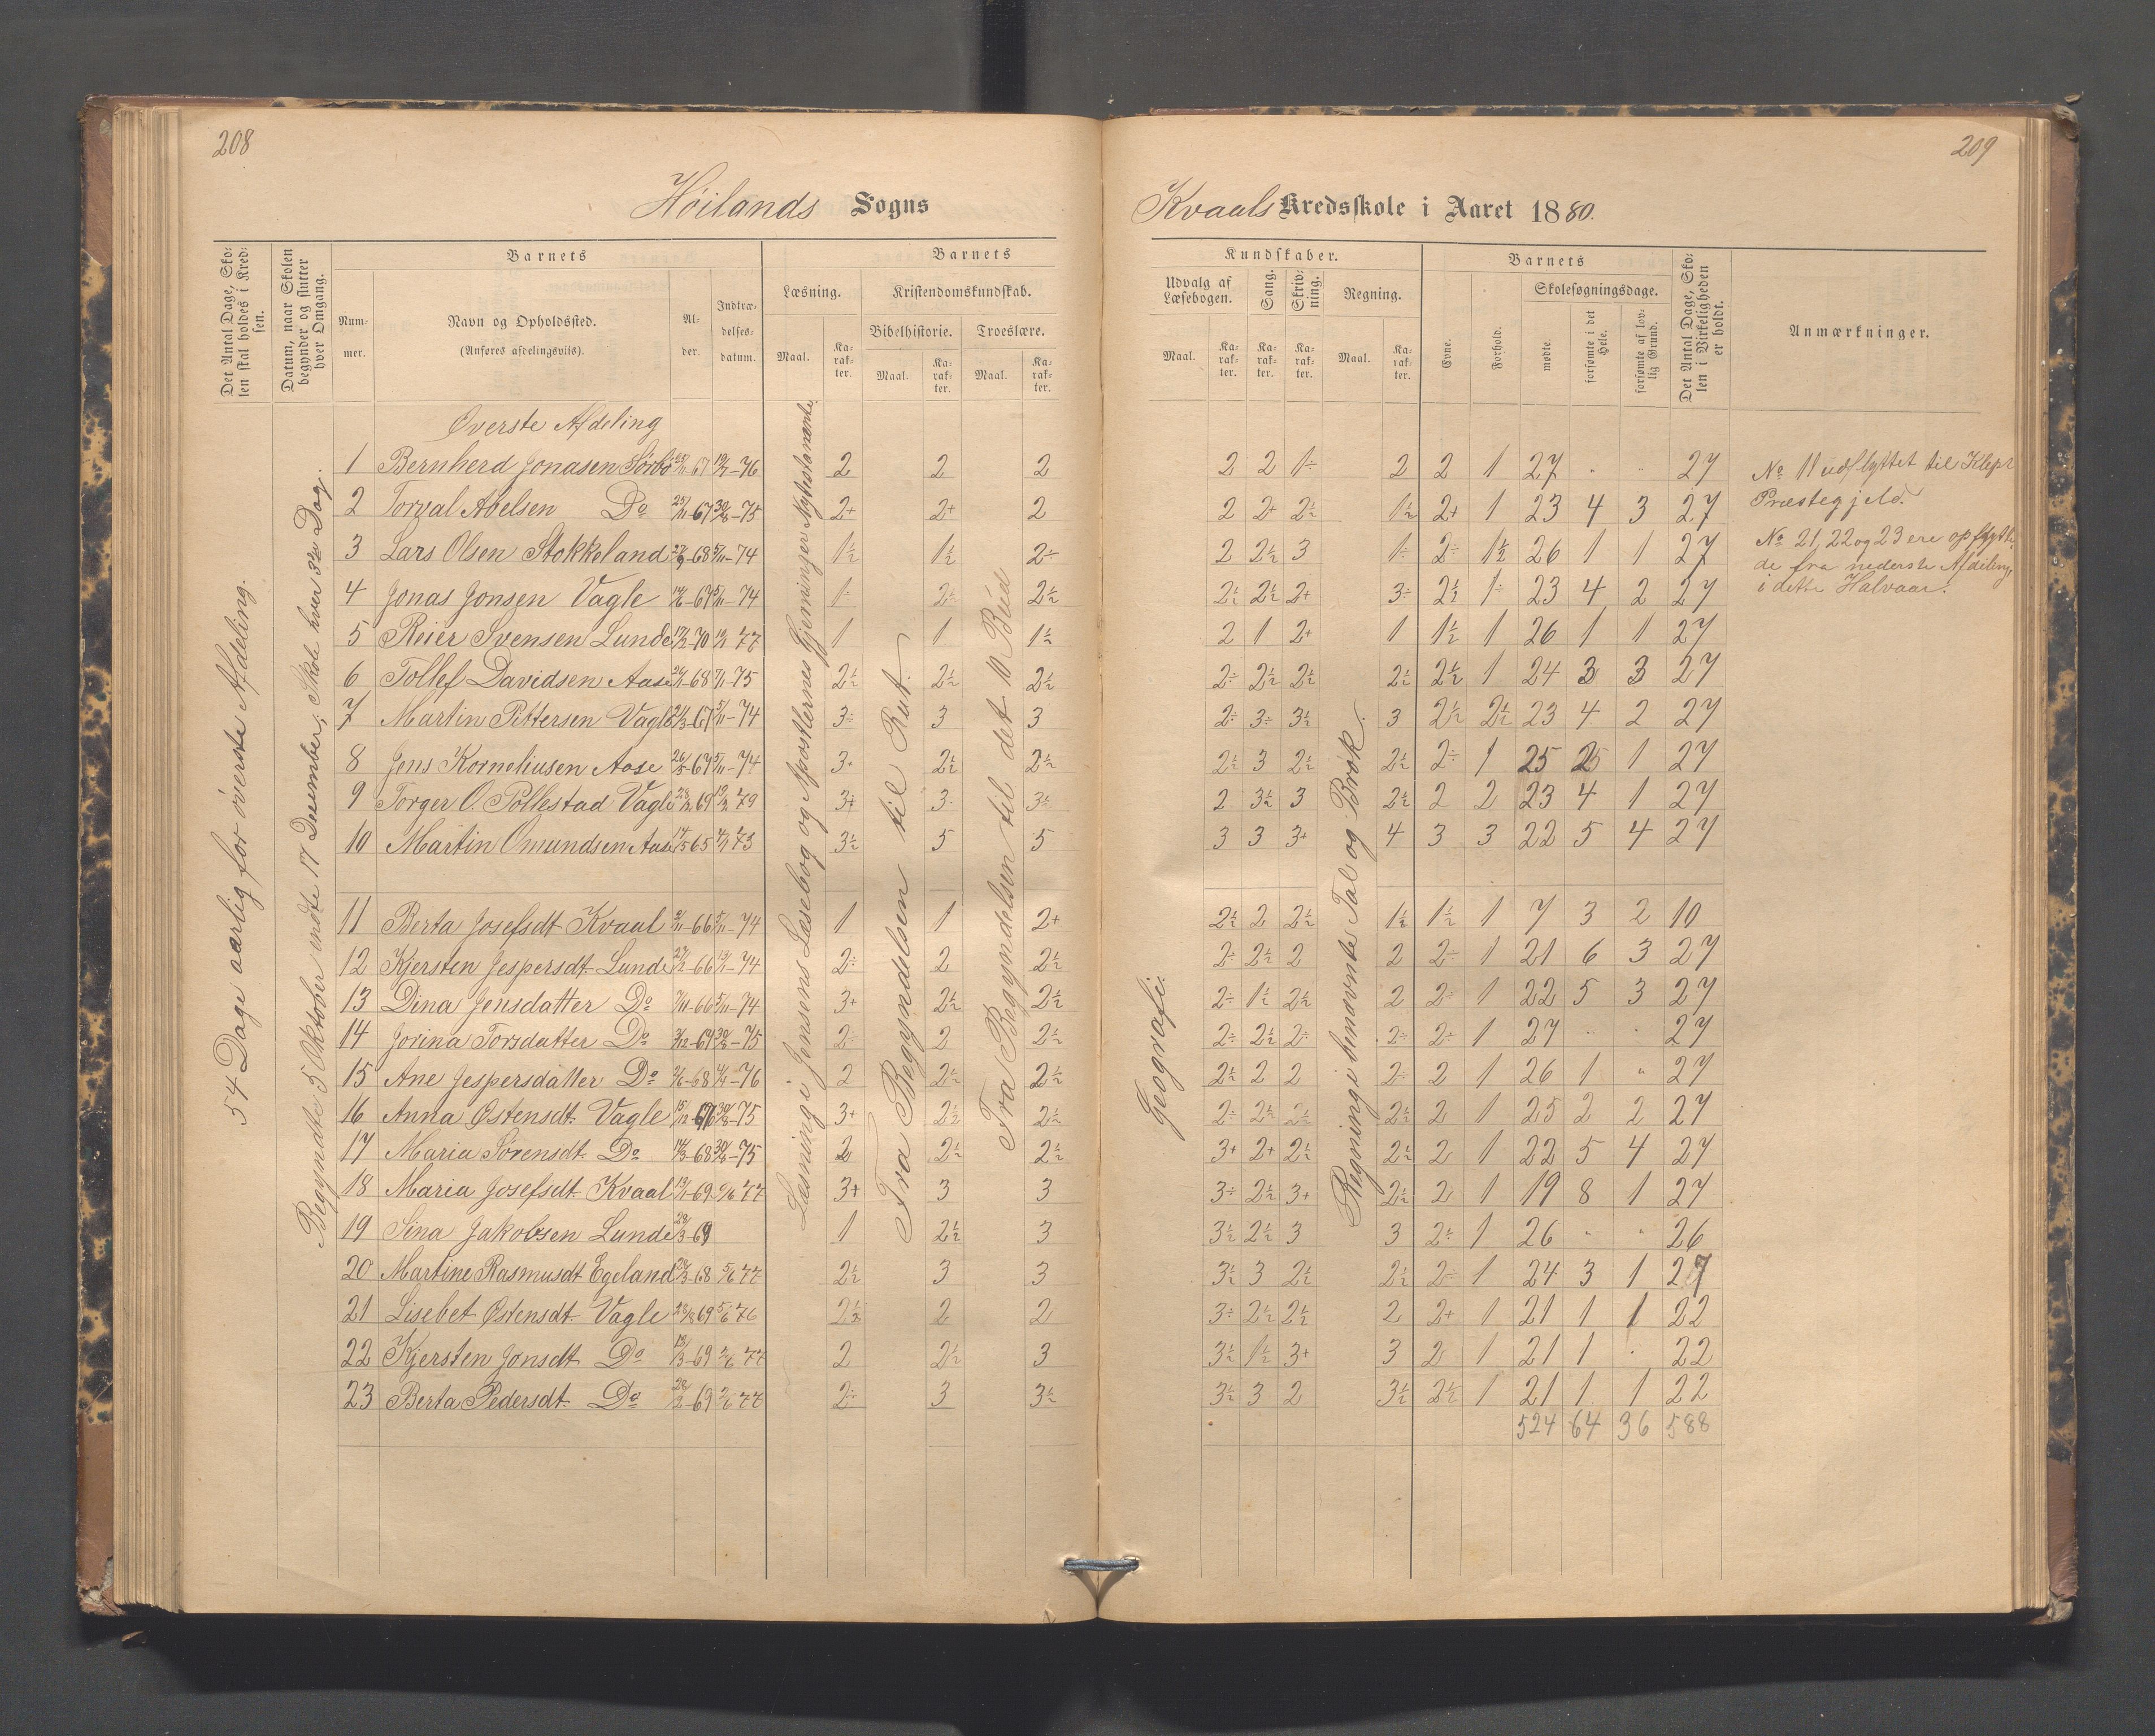 208
Höilands Sogns
Det Antal Dage, Sko-
len skal holdes i Kred-
sen.
Datum, naar Skolen
begynder og slutter
hver Omgang.
Barnets
Num-
mer.
Navn og Opholdssted.
(Anføres afdelingsviis).
Al-
der.
Indtræ-
delses-
datum.
Barnets
Læsning.
Kristendomskundskab.
Bibelhistorie.
Troeslære.
Maal.
Ka-
rak-
ter.
Maal.
Ka-
rak-
ter.
Maal.
Ka-
rak-
ter.
54 Dage aarlig for överste Afdeling.
Begyndte 5 Oktober endte 17 Desember, Skole hver 3die Dag.
Læsning i Jensens Læsebog og Apostlernes Gjerninger Nytestamente.
Fra Begyndelsen til Rut.
Fra Begyndelsen til det 10 Bud
Överste Afdeling
1 Bernherd Jonasen 67 76 2 2 2
2 Torval Abelsen Do 25/11-67 30/8-75 2+ 2+ 2
3 Lars Olsen Stokkeland 68 5/11-74 1½ 1½ 2÷
4 Jonas Jonsen Vagle 5/11-74 1÷ 2½ 2½
5 Reier Svensen Lunde 17/2-70 77 1 1 1½
6 Tollef Davidsen Aase 68 75 2½ 2½ 2½
7 Martin Pittersen Vagle 67 5/11-74 3÷ 3 3
8 Jens Korneliusen Aase 26/5-67 5/11-74 3+ 2½ 2½
9 Torger O. Pollestad Vagle 69 79 3+ 3 3½
10 Martin Omundsen Aase 65 73 3½ 5 5
11 Berta Josefsdt Kvaal 66 5/11-74 1 1 2+
12 Kjersten Jespersdt Lunde 66 74 2÷ 2 2½
13 Dina Jensdatter Do 66 5/11-74 3+ 2½ 2½
14 Jorina Torsdatter Do 69 30/8-75 2÷ 2 2½
15 Ane Jespersdatter Do 68 76 2 2½ 2½
16 Anna Østensdt. Vagle 30/8-75 3+ 2½ 2½
17 Maria Sörensdt. Do 68 30/8-75 2 2½ 2½
18 Maria Josefsdt Kvaal 69 77 3+ 3 3
19 Sina Jakobsen Lunde 69 1 2½ 3
20 Martine Rasmusdt Egeland 68 5/6 77 2½ 3 3
21 Lisebet Østensdt Vagle 69 5/6 76 2½ 2 2
22 Kjersten Jonsdt Do 13/3-69 77 2 2½ 3
23 Berta Pedersdt. Do 69 77 2÷ 3 3½
209
Kvaals Kredsskole i Aaret 1880.
Kundskaber.
Udvalg af
Læsebogen.
Sang.
Skriv-
ning.
Regning.
Maal.
Ka-
rak-
ter.
Ka-
rak-
ter.
Ka-
rak-
ter.
Maal.
Ka-
rak-
ter.
Barnets
Evne.
Forhold.
Skolesøgningsdage.
mødte.
forsømte i det
Hele.
forsømte af lov-
lig Grund.
Det Antal Dage, Sko-
len i Virkeligheden
er holdt.
Anmærkninger.
Geografi.
Regning i benævnte Tal og Brök.
2 2 1÷ 2 2 1 27 " " 27
2 2+ 2½ 1½ 2+ 1 23 4 3 27
2 2½ 3 1÷ 2÷ 1½ 26 1 1 27
2½ 2½ 2+ 3÷ 2½ 1÷ 23 4 2 27
2 1 2+ 1 1½ 1 26 1 1 27
2÷ 2½ 2½ 2½ 2½ 1 24 3 3 27
2÷ 3÷ 3½ 3 2½ 2½ 23 4 2 27
2½ 3 2½ 2½ 2÷ 1 25 2 1 27
2 3½ 3 2½ 2 2 23 4 1 27
3 3 3+ 4 3 3 22 5 4 27
2½ 2 2½ 1½ 1½ 1 7 3 2 10
2÷ 2½ 2 2 2÷ 1 21 6 3 27
2÷ 1½ 2½ 2 2÷ 1 22 5 3 27
2÷ 2½ 2÷ 2÷ 2÷ 1 27 " " 27
2½ 2 2 2÷ 2 1 26 1 " 27
2÷ 2½ 2½ 2½ 2 1 25 2 2 27
3+ 2+ 2½ 2½ 2 1 22 5 4 27
3÷ 2½ 3+ 2½ 2 1 19 8 1 27
3½ 2½ 3 3 2÷ 1 26 " " 26
3½ 3 2½ 2½ 2÷ 1 24 3 1 27
3÷ 2½ 2½ 2 2+ 1 21 1 1 22
3½ 1½ 3+ 3 2 1 21 1 " 22
3½ 3 2 3½ 2½ 1 21 1 1 22
524 64 36 588
No 11 udflyttet til Klepr
Præstegjeld.
No 21, 22 og 23 ere opflytte-
de fra nederste Afdeling
i dette Halvaar.